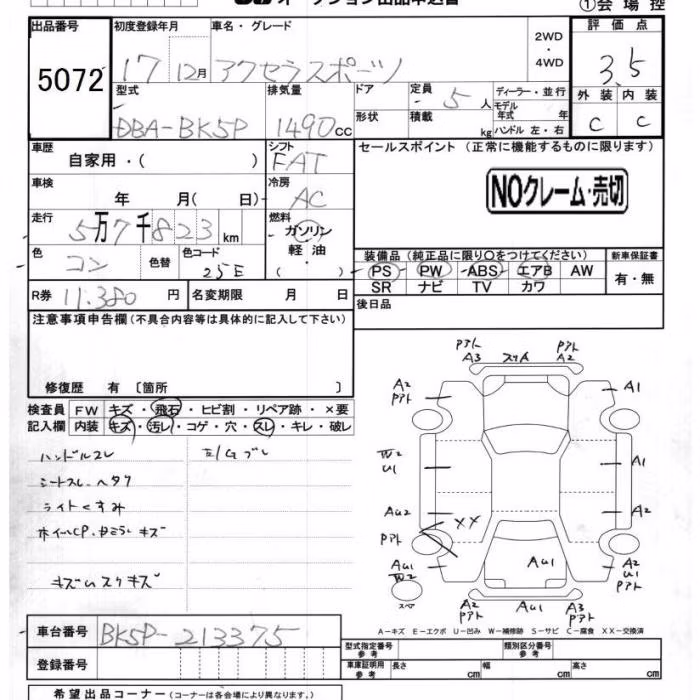 オークション出品申込書
①会場控
出品番号 初度登録年月 車名・グレード 2WD・4WD 評価点
5072 17 12月 アクセラスポーツ 3.5
型式 排気量 ドア 定員 ディーラー・並行 外装 内装
DBA-BK5P 1490cc 5人 モデル年式 年 C C
形状 積載 kg ハンドル 左・右
車歴 シフト セールスポイント (正常に機能するものに限ります)
自家用・( ) FAT
車検 冷房 NOクレーム・売切
年 月( 日) AC
走行 燃料
5万7千823km ガソリン
軽油
( )
色 色替 色コード
コン 25E
装備品 (純正品に限り○をつけてください) 新車保証書
PS PW ABS エアB AW 有・無
SR ナビ TV カワ
R券 11.380円 名変期限 月 日 後日品
注意事項申告欄 (不具合内容等は具体的に記入して下さい)
修復歴 有 〔箇所 〕
検査員 FW キズ・飛石・ヒビ割・リペア跡・×要
記入欄 内装 キズ・汚レ・コゲ・穴・スレ・キレ・破レ
ハンドルスレ
シートスレ・ヘタリ
ライトくすみ
アトA3 スリA アトA2
A2 A1
W2 U1 A1
AU2 XX A2
AU1 W2 AU1 A2 U1
スペア
A2 AU1 A3
A-キズ E-エクボ U-凹み W-補修跡 S-サビ C-腐食 XX-交換済
車台番号 BK5P-213375
型式指定番号 参考 類別区分番号 参考
登録番号
車庫証明用 参考 長さ cm 幅 cm 高さ cm
希望出品コーナー (コーナーは各会場により異なります。)